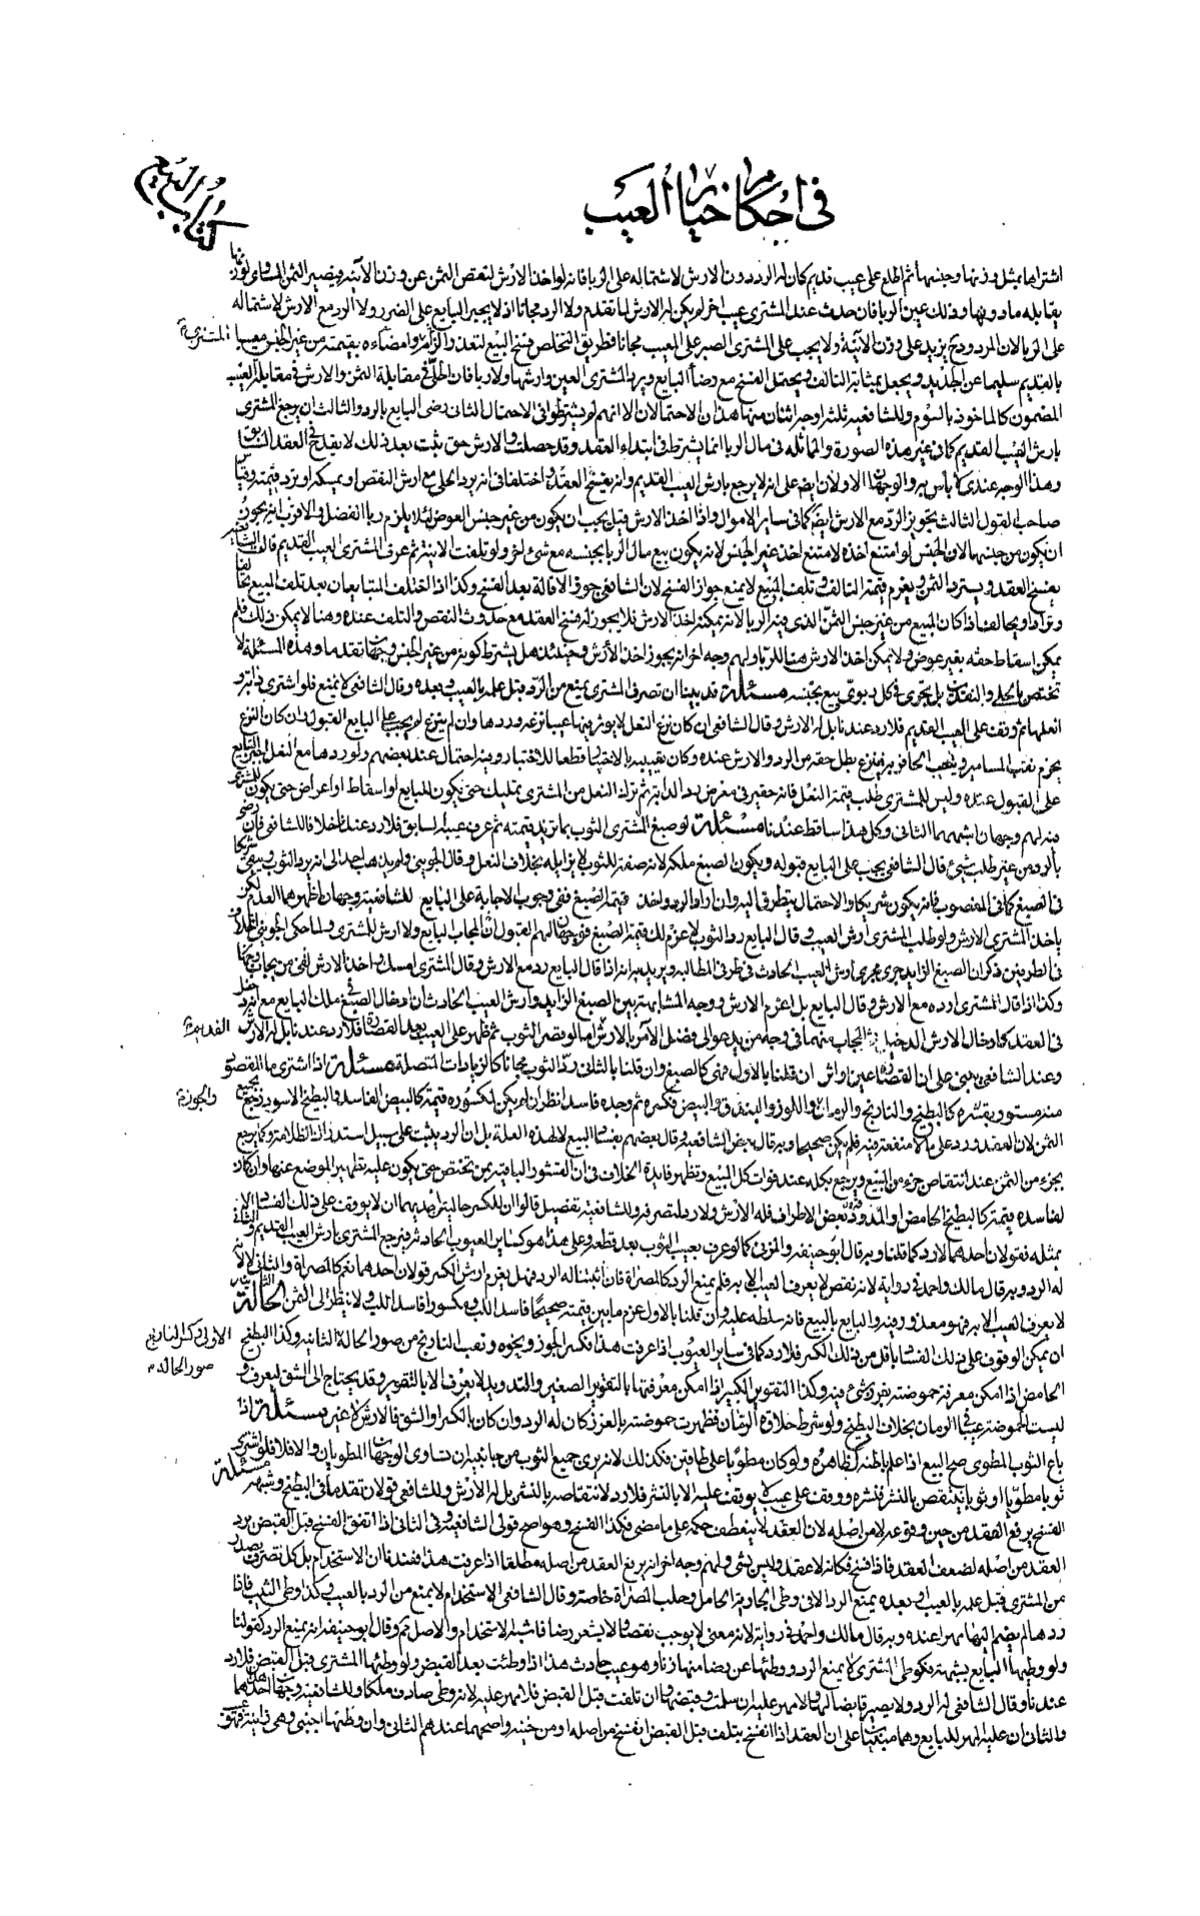 كتاب البيع
في احكام خيار العيب
اشتراها بمثل وزنها وجنسها ثم اطلع على عيب قديم كان له الرد دون الارش لاشتماله على الربا فانه لو اخذ الارش لنقص الثمن عن وزن الآنية فيصير الثمن المساوي لوزنها
يقابله ما دونها وذلك عين الربا فان حدث عند المشتري عيب اخر لم يكن له الارش لما تقدم ولا الرد مجانا اذ لا يجبر البايع على الضرر ولا الرد مع الارش لاشتماله
على الربا لان المردود ح يزيد على وزن الآنية ولا يجب على المشتري الصبر على المعيب مجانا فطريق التخلص فسخ البيع لتعذر امضاءه بقيمته من غير الجنس معيبا
بالقديم سليما عن الجديد ويجعل بمثابة التالف ويحتمل الفسخ مع رضا البايع ويرد المشتري العين وارشها ولا ربا فان الحلي في مقابلة الثمن والارش في مقابلة العيب
المضمون كالماخوذ بالسوم وللشافعية ثلثة اوجه اثنان منها هذان الاحتمالان الا انهم لم يشترطوا في الاحتمال الثاني رضى البايع بالرد والثالث ان يرجع المشتري
بارش العيب القديم كما في غير هذه الصورة والمماثلة في مال الربا انما يشترط في ابتداء العقد وقد حصلت والارش حق ثبت بعد ذلك لا يقدح في العقد السابق
وهذا الوجه عندي لا بأس به والوجهان الاولان على انه لا يرجع بارش العيب القديم وانه يفسخ العقد واختلفا في انه يرد الحلي مع ارش النقص او يمسكه ويرد قيمته وقياس
صاحب القول الثالث تجويز الرد مع الارش ايضا كما في ساير الاموال واذا اخذ الارش قيل يجب ان يكون من غير جنس العوض لئلا يلزم ربا الفضل والاقرب انه يجوز
ان يكون من جنسهما لان الجنس لو امتنع اخذه لامتنع اخذ غير الجنس لانه يكون بيع مال الربا بجنسه مع شيء اخر ولو تلفت الآنية ثم عرف المشتري العيب القديم قال
يفسخ العقد ويسترد الثمن ويغرم قيمة التالف وتلف المبيع لا يمنع جواز الفسخ لان الشافعي جوز الاقالة بعد الفسخ وكذا اذا اختلف المتبايعان بعد تلف المبيع تحالفا
وترادا ويخالف اذا كان المبيع من غير جنس الثمن الذي فيه الربا لانه يمكنه اخذ الارش فلا يجوز له فسخ العقد مع حدوث النقص والتلف عنده وهنا لا يمكن ذلك فلم
يمكن اسقاط حقه بغير عوض ولا يمكن اخذ الارش هنا للربا ولهم وجه اخر انه يجوز اخذ الارش وحينئذ هل يشترط كونه من غير الجنس وجهان تقدما وهذه المسئلة لا
تختص بالحلي والنقدين بل يجري في كل ربوي بيع بجنسه مسئلة قد بينا ان تصرف المشتري يمنع من الرد قبل علمه بالعيب وبعده وقال الشافعي لا يمنع فلو اشترى دابة و
انعلها ثم وقف على العيب القديم فلا رد عندنا بل له الارش وقال الشافعي ان كان نزع النعل لا يوثر فيها عيبا نزعه وردها وان لم ينزع لم يجب على البايع القبول وان كان النزع
يخرم نقب المسامير ويعيب الحافر به فنزع بطل حقه من الرد والارش عنده وكان تعييبه بالاختيار قطعا للاختبار وفيه احتمال عند بعضهم ولو ردها مع النعل اجبر البايع
على القبول عنده وليس للمشتري طلب قيمة النعل فانه حقير في معرض رد الدابة ثم ترك النعل من المشتري تمليك حتى يكون للبايع او اسقاط او اعراض حتى يكون للمشتري
فيه لهم وجهان اشبههما الثاني وكل هذا ساقط عندنا مسئلة لو صبغ المشتري الثوب بما تزيد قيمته ثم عرف عيبه السابق فلا رد عندنا خلافا للشافعي فان رضي
بالرد من غير طلب شيء قال الشافعي يجب على البايع قبوله ويكون الصبغ ملكه لانه صفة للثوب لا يزايله بخلاف النعل وقال الجويني ولم يذهب احد الى انه يرد الثوب ويبقى شريكا
في الصبغ كما في المغصوب فانه يكون شريكا والاحتمال يتطرق اليه وان اراد الرد واخذ قيمة الصبغ ففي وجوب الاجابة على البايع للشافعية وجهان اظهرهما العدم لكن
ياخذ المشتري الارش ولو طلب المشتري ارش العيب وقال البايع رد الثوب لاغرم لك قيمة الصبغ فوجهان لهم القبول ان المجاب البايع ولا ارش للمشتري
وكذا اذا قال المشتري ارده مع الارش وقال البايع بل اغرم الارش ووجه المشابهة بين الصبغ الزايد وارش العيب الحادث ان ادخال الصبغ في ملك البايع مع انه دخيل
وعند الشافعي يبنى على ان القصارة عين او اثر ان قلنا بالاول فهي كالصبغ وان قلنا بالثاني رد الثوب مجانا كالزيادات المتصلة مسئلة اذا اشترى ما المقصود
منه مستور بقشره كالبطيخ والنارنج والرمان واللوز والبندق والبيض فكسره ثم وجده فاسدا نظر ان لم يكن لمكسوره قيمة كالبيض الفاسد والبطيخ الاسود رجع بجميع
الثمن لان العقد ورد على ما لا منفعة فيه فلم يكن صحيحا وبه قال بعض الشافعية وقال بعضهم بفساد البيع لا لهذه العلة بل ان الرد يثبت على سبيل استدراك الظلامة وكما يرجع
بجزء من الثمن عند انتقاص جزء من المبيع يرجع بكله عند فوات كل المبيع وتظهر فايدة الخلاف في ان القشور الباقية بمن تختص حتى يكون عليه تطهير الموضع عنها وان كان
لفاسده قيمة كالبطيخ الحامض او المدود بعض الاطراف فله الارش ولا رد لتصرفه وللشافعية تفصيل قالوا ان للكسر حالتين احديهما ان لا يوقف على ذلك الفساد الا
بمثله فقولان احدهما لا رد كما قلنا وبه قال ابو حنيفة والمزني كما لو عرف بعيب الثوب بعد قطعه وعلى هذا هو كساير العيوب الحادثة فيرجع المشتري بارش العيب القديم والثاني
له الرد وبه قال مالك واحمد في رواية لانه نقص لا يعرف العيب الا به فلم يمنع الرد كالمصراة فان اثبتنا له الرد فهل يغرم ارش الكسر قولان احدهما نعم كالمصراة والثاني لا لانه
لا يعرف العيب الا به فهو معذور فيه والبايع بالبيع فانه سلطه عليه وان قلنا بالاول غرم ما بين قيمته صحيحا فاسد اللب ومكسورا فاسد اللب ولا ينظر الى الثمن الحالة الثانية
ان يمكن الوقوف على ذلك الفساد باقل من ذلك الكسر فلا رد كما في ساير العيوب اذا عرفت هذا فكسر الجوز ونحوه وثقب النارنج من صور الحالة الثانية وكذا البطيخ
الحامض اذا امكن معرفة حموضته بغرز شيء فيه وكذا التقوير الكبير اذا امكن معرفتها بالتقوير الصغير والتدويد لا يعرف الا بالتقوير وقد يحتاج الى الشق ليعرف و
ليست الحموضة عيبا في الرمان بخلاف البطيخ ولو شرط حلاوة الرمان فظهرت حموضته بالغرز كان له الرد وان كان بالكسر او الشق فالارش لا غير مسئلة اذا
باع الثوب المطوي صح البيع اذا علم باطنه كظاهره ولو كان مطويا على طاقين فكذلك لانه يرى جميع الثوب من جانبيه ان تساوى الوجهان المطويان والا فلا فلو اشترى
ثوبا مطويا او ثوبا ينقص بالنشر فنشره ووقف على عيب لا يوقف عليه الا بالنشر فلا رد لانتقاصه بالنشر بل له الارش وللشافعي قولان تقدما في البطيخ وشبهه مسئلة
الفسخ يرفع العقد من حين وقوعه لا من اصله لان العقد لا ينعطف حكمه على ما مضى فكذا الفسخ وهو اصح قولي الشافعية وفي الثاني اذا اتفق الفسخ قبل القبض يرد
العقد من اصله لضعف العقد فاذا فسخ فكانه لا عقد وليس بشيء ولهم وجه اخر انه يرفع العقد من اصله مطلقا اذا عرفت هذا فعندنا ان الاستخدام بل كل تصرف يصدر
من المشتري قبل علمه بالعيب وبعده يمنع الرد الا في وطي الجارية الحامل وحلب المصراة خاصة وقال الشافعي الاستخدام لا يمنع من الرد بالعيب وكذا وطي الثيب فاذا
ردها لم يضم اليها مهرا عنده وبه قال مالك واحمد في رواية لانه معنى لا يوجب نقصا ولا يشعر رضا فاشبه الاستخدام والاصل ثم وقال ابو حنيفة انه يمنع الرد كقولنا
ولو وطيها البايع بشبهة فكوطي المشتري لا يمنع الرد ووطئها عن رضا منها زنا وهو عيب حادث هذا اذا وطئت بعد القبض ولو وطئها المشتري قبل القبض فلا رد
عندنا وقال الشافعي له الرد ولا يصير قابضا لها ولا مهر عليه ان سلمت وقبضها وان تلفت قبل القبض فلا مهر عليه لانه وطي صادف ملكا وللشافعية وجهان هذا احدهما
والثاني ان عليه المهر للبايع وهما مبنيان على ان العقد اذا انفسخ بتلف قبل القبض ينفسخ من اصله او من حينه واصحهما عندهم الثاني وان وطئها اجنبي وهي زانية فهو عيب
المشتري
القديم
والجوز